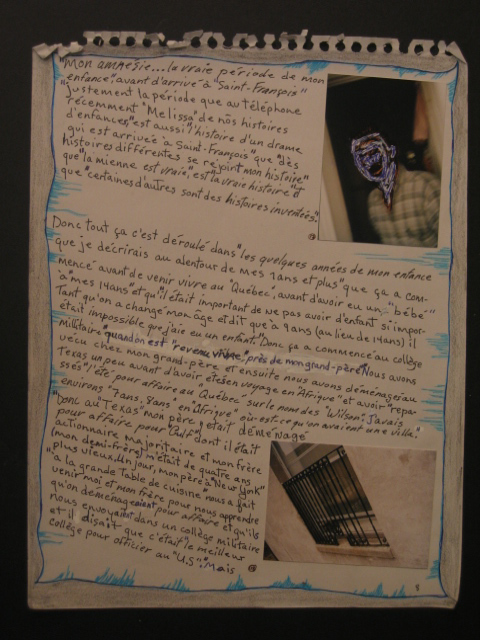 "Mon amnésie...la vraie période de mon
enfance", avant d'arrivé à "Saint-François"
justement la période que au téléphone
récemment "Melissa" de nos histoires
d'enfances, "est aussi "l'histoire d'un drame
qui est arrivée à Saint-François" que "dès
histoires différentes se rejoint mon histoire"
que "la mienne est vraie", est la vraie histoire" et
que "certaines d'autres sont des histoires inventées".
Donc tout ça c'est déroulé dans "les quelques années de mon enfance
que je décrirais au alentour de mes 7ans et plus" que ça a com-
mencé avant de venir vivre au "Québec", avant d'avoir eu un "bébé"
"à mes 14ans" et qu'il était important de ne pas avoir d'enfant si impor-
Tant qu'on a changé mon âge et dit que à 9ans (au lieu de 14ans) il
était impossible que j'aie eu un enfant. "Donc ça a commencé au collège
militaire "quand on est "revenu vivre", près de mon grand-père" Nous avons
vécu chez mon grand-père et ensuite nous avons déménagés au
Texas un peu avant d'avoir étés en voyage en "Afrique" et avoir "repa-
ssés" l'été pour affaire au "Québec" sur le nom des "Wilson". J'avais
environs "7ans, 8ans" en "Afrique" où est-ce qu'on avaient une ville.
"Donc au "Texas" mon père "était déménagé
pour affaire pour "Gulf", dont il était
actionnaire majoritaire et mon frère
(mon demi-frère) m'était de quatre ans
plus vieux. Un jour, mon père à "New York"
"à la grande Table de cuisine" nous a fait
venir moi et mon frère pour nous apprendre
qu'on déménageaient pour affaire et qu'ils
nous envoyaient dans un collège militaire
et il disait que c'était le meilleur
collège pour officier au "U.S". Mais